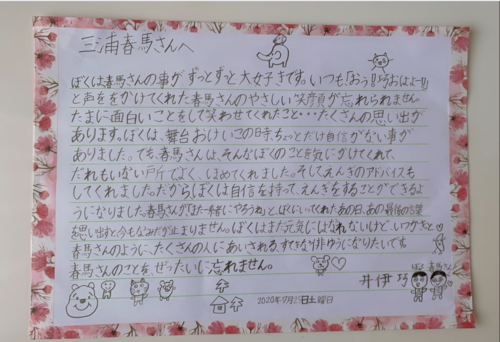 三浦春馬さんへ
ぼくは春馬さんの事がずっとずっと大女子きです。いつも「おう！巧おはよー!!」
と声ををかけてくれた春馬さんのやさしい笑顔が忘れられません。
たまに面白いことをして笑わせてくれたこと・・・たくさんの思い出が
あります。ぼくは、舞台おけいこの時ちょっとだけ自信がない事が
ありました。でも、春馬さんは、そんなぼくのことを気にかけてくれて、
だれもいない所でよく、ほめてくれました。そしてえんぎのアドバイスも
してくれました。だからぼくは自信を持って、えんぎをすることができるよ
うになりました。春馬さんが「また一緒にやろうね」と、ぼくにいってくれたあの日、あの最後の言葉
を思い出すと、今もなみだが止まりません。ぼくはまだ元気にはなれないけど、いつかきっと
春馬さんのように、たくさんの人にあいされる、すてきなはいゆうになりたいです。
春馬さんのことを、ぜったいに忘れません。
ぼく 春馬さん
井伊 巧
2020年7月25日土曜日